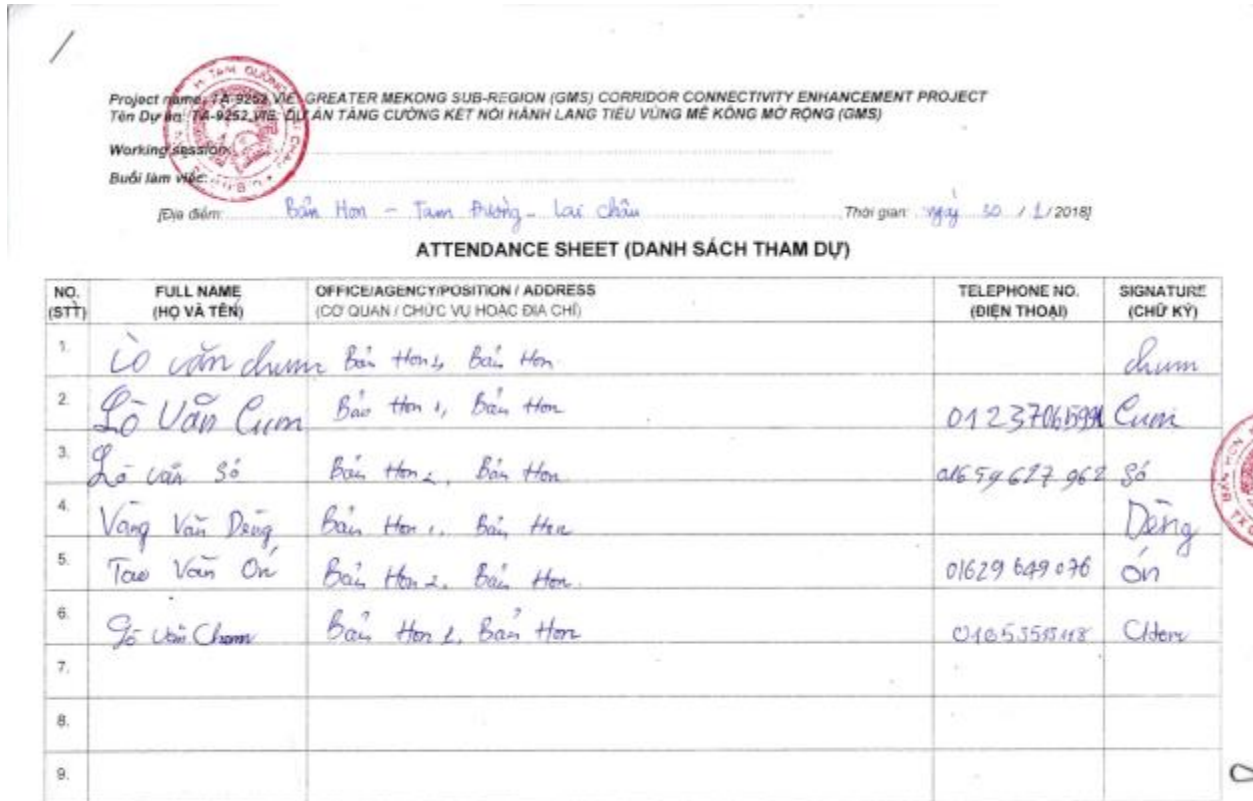 Project name: TA-9252 VIE: GREATER MEKONG SUB-REGION (GMS) CORRIDOR CONNECTIVITY ENHANCEMENT PROJECT
Tên Dự án: TA-9252 VIE: DỰ ÁN TĂNG CƯỜNG KẾT NỐI HÀNH LANG TIỂU VÙNG MÊ KÔNG MỞ RỘNG (GMS)
Working session:
Buổi làm việc:
[Địa điểm: Bản Hon - Tam Đường - Lai Châu Thời gian: ngày 30 / 1 / 2018]
ATTENDANCE SHEET (DANH SÁCH THAM DỰ)
NO. FULL NAME OFFICE/AGENCY/POSITION / ADDRESS TELEPHONE NO. SIGNATURE
(STT) (HỌ VÀ TÊN) (CƠ QUAN / CHỨC VỤ HOẶC ĐỊA CHỈ) (ĐIỆN THOẠI) (CHỮ KÝ)
1. Lò văn chum Bản Hon Bản Hon chum
2. Lò Văn Cum Bản Hon 1, Bản Hon Cum
3. Lò văn Số Bản Hon 2, Bản Hon 01659627962 Số
4. Vàng Văn Dèng Bản Hon 1, Bản Hon Dèng
5. Tao Văn Ón Bản Hon 2, Bản Hon. 01629649076 Ón
6. Lò Văn Chom Bản Hon Bản Hon
7.
8.
9.